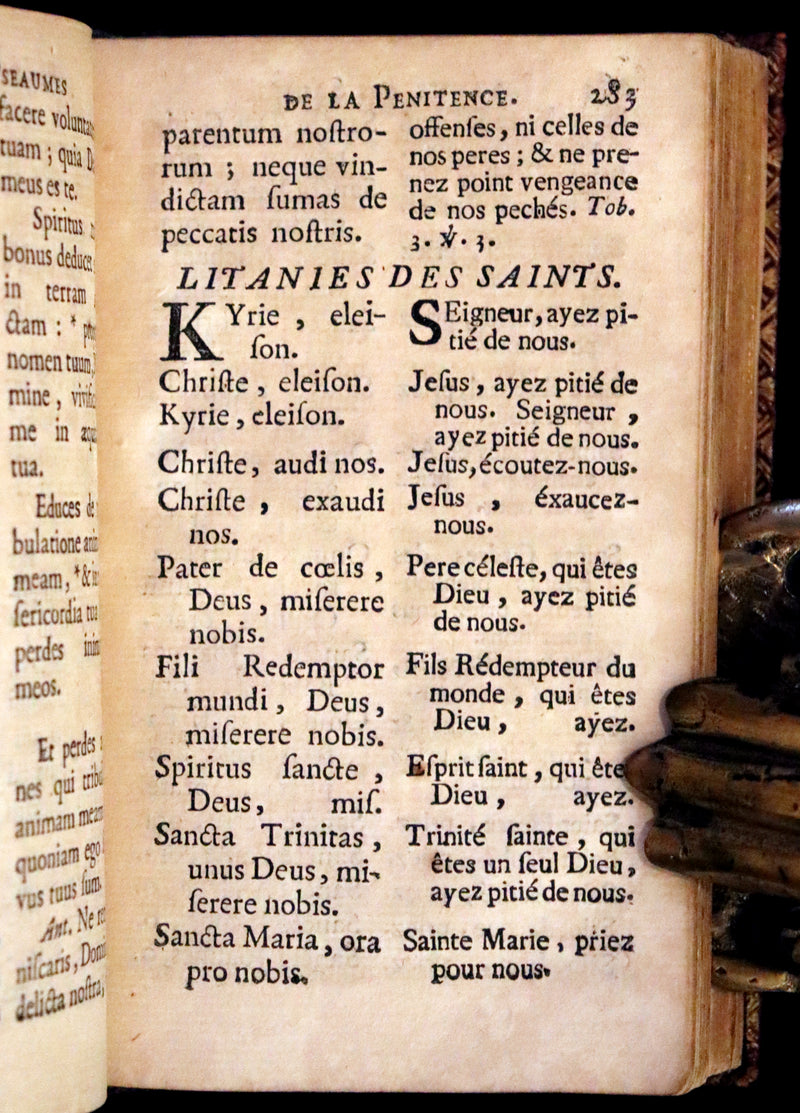 SEAUMES
facere
tuam ; quia
meus es te.
Spiritus
bonus
in terram
ctam : *
nomen tuum,
mine,
me in
tua.
Educes de
bulatione
meam, * &
ſericordia tua
perdes
meos.
Et perdes
nes qui
animam meam
quoniam ego
vus tuus ſum.
Ant. Ne
niſcaris,
delicta noſtra,
DE LA PENITENCE. 283
parentum noſtro-
rum ; neque vin-
dictam ſumas de
peccatis noſtris.
offenſes, ni celles de
nos peres ; & ne pre-
nez point vengeance
de nos pechés. Tob.
3. ℣. 3.
LITANIES DES SAINTS.
KYrie , elei-
ſon.
Chriſte , eleiſon.
Kyrie, eleiſon.
Chriſte, audi nos.
Chriſte , exaudi
nos.
Pater de cœlis ,
Deus, miſerere
nobis.
Fili Redemptor
mundi, Deus,
miſerere nobis.
Spiritus ſancte ,
Deus, miſ.
Sancta Trinitas ,
unus Deus, mi-
ſerere nobis.
Sancta Maria, ora
pro nobis.
SEigneur, ayez pi-
tié de nous.
Jeſus, ayez pitié de
nous. Seigneur ,
ayez pitié de nous.
Jeſus, écoutez-nous.
Jeſus , éxaucez-
nous.
Pere céleſte, qui êtes
Dieu , ayez pitié
de nous.
Fils Rédempteur du
monde , qui êtes
Dieu , ayez.
Eſprit ſaint, qui
Dieu , ayez.
Trinité ſainte , qui
êtes un ſeul Dieu,
ayez pitié de nous.
Sainte Marie, priez
pour nous.